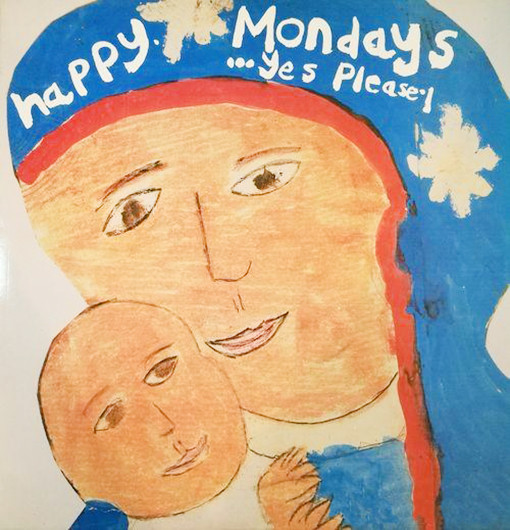 happy. Mondays
...Yes Please.!